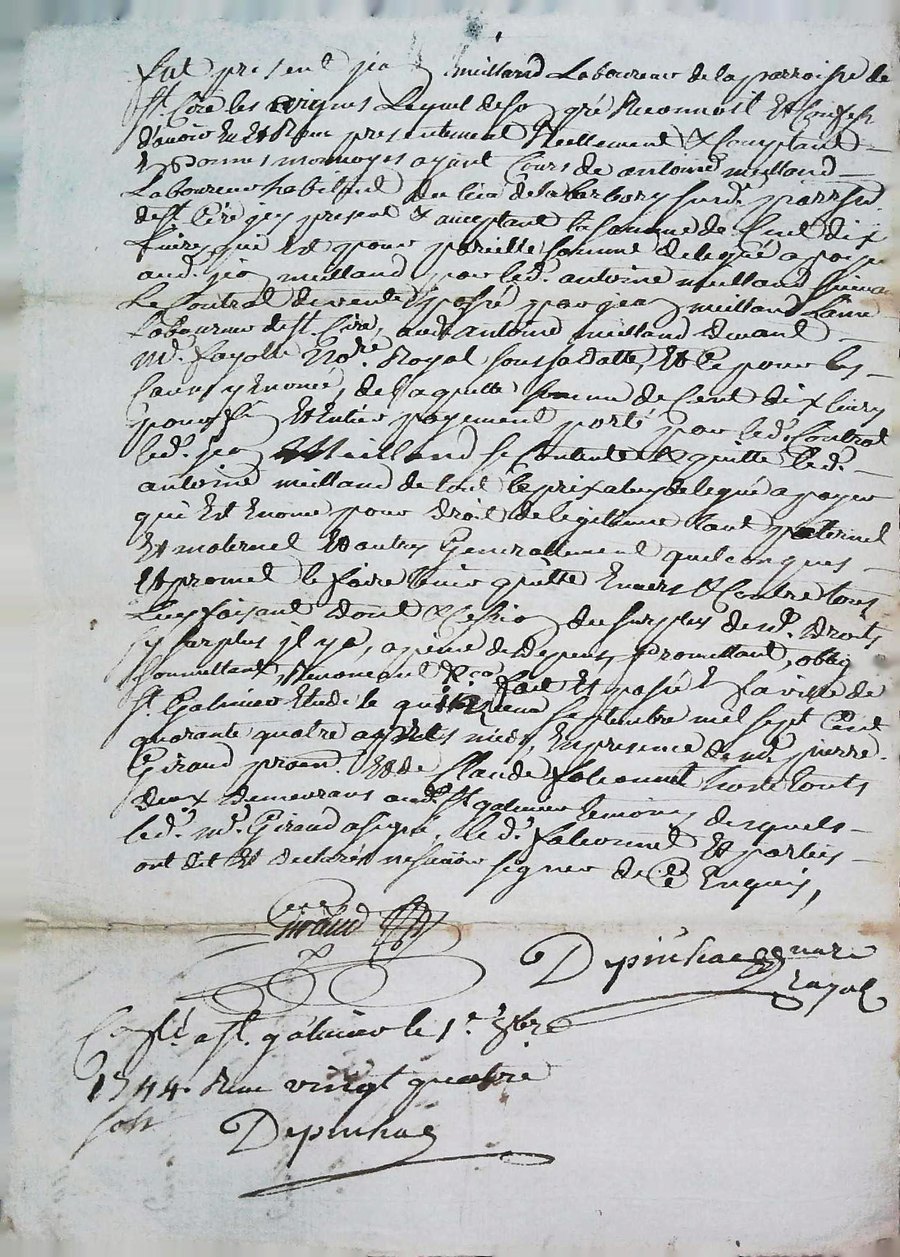 fut present jean meilland Laboureur de la parroisse de
St. Ciré les vignes Lequel de son gré Reconnoist Et Confesse
d'avoir Eu Et Receu presentement Reellement & Comptant
En bonnes monnoyes ayant Cours de antoine meilland
Laboureur habitant du lieu de la susde. parroisse
de st. Ciré icy present & acceptant la somme de Cent dix
livres qui Est pour pareille somme delegué a payer
aud. jean meilland par led. antoine meilland suivant
Le Contrat de vente passé par jean meilland Laine
Laboureur de st. Ciré, aud. antoine meilland devant
Me. fayolle Nore. Royal sous sa datte, Et Ce pour les
Causes y Enoncé, de laquelle somme de Cent dix livres
pour Et Entier payement porté par led. Contrat
led. jean Meilland se Contente & quitte led.
antoine meilland de tout le prix a luy delegué a payer
qui Est Enoncé pour droit de legitime tant paternel
Et maternel Et autres Generallement quelconques
Et promet le faire tenir quitte Envers & Contre tous
Luy faisant & Cession du surplus de sd. droits
sy surplus il y a, a peine de depens, promettant, oblig
soumettant, Renonceant &ca. fait Et passé En la ville de
St. Galmier Etude le septembre mil sept Cent
quarante quatre apres midy, En presence de me. pierre
Giraud Et de Claude falconnet hoste touts
deux demeurans aud. st. galmier temoins desquels
led. me. Giraud a signé, led. falconnet Et parties
ont dit Et declarés ne scavoir signer de Ce Enquis,
Giraud
Depinhac nore
Royal
Conllé a st. galmier le 1er 8bre
1744. Receu vingt quatre
sols
Depinhac